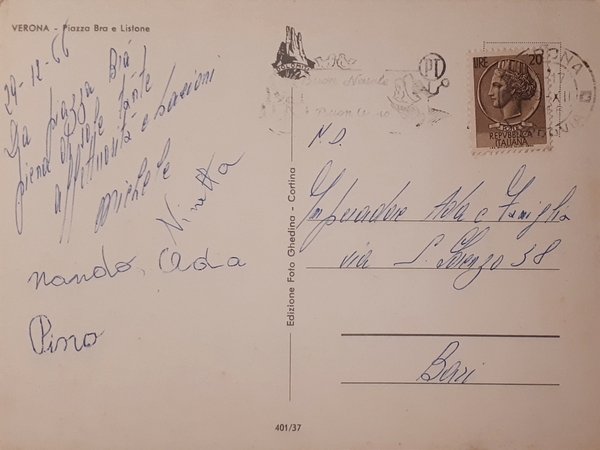 VERONA - Piazza Bra e Listone
29-12-66
Da piazza Brà
piena di sole tante
affettuosità e bacioni
Michele
Ninetta
Nando, Ada
Pino
Edizione Foto Ghedina - Cortina
401/37
PT
Buon Natale
Buon
VERONA
LIRE 20
REPUBBLICA
ITALIANA
N.D.
Imperadore Ada e Famiglia
via S. Lorenzo 38
Bari